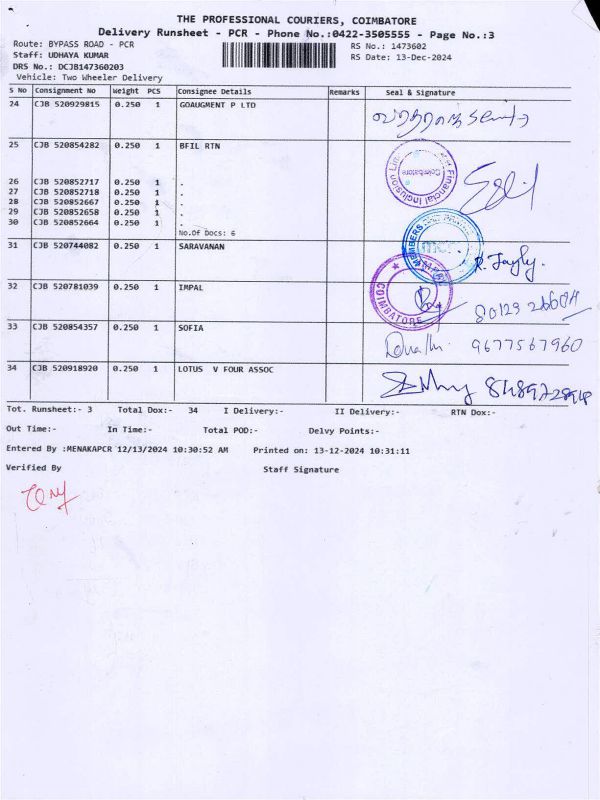 THE PROFESSIONAL COURIERS, COIMBATORE
Delivery Runsheet - PCR - Phone No.:0422-3505555 - Page No.:3
Route: BYPASS ROAD - PCR RS No.: 1473602
Staff: UDHAYA KUMAR RS Date: 13-Dec-2024
DRS No.: DCJB147360203
Vehicle: Two Wheeler Delivery
S No Consignment No Weight PCS Consignee Details Remarks Seal & Signature
24 CJB 520929815 0.250 1 GOAUGMENT P LTD
25 CJB 520854282 0.250 1 BFIL RTN
Financial Inclusion
Coimbatore
26 CJB 520852717 0.250 1 .
27 CJB 520852718 0.250 1 .
28 CJB 520852667 0.250 1 .
29 CJB 520852658 0.250 1 .
30 CJB 520852664 0.250 1 .
No.Of Docs: 6
31 CJB 520744082 0.250 1 SARAVANAN
32 CJB 520781039 0.250 1 IMPAL
COIMBATORE
33 CJB 520854357 0.250 1 SOFIA 9677567960
34 CJB 520918920 0.250 1 LOTUS V FOUR ASSOC
Tot. Runsheet:- 3 Total Dox:- 34 I Delivery:- II Delivery:- RTN Dox:-
Out Time:- In Time:- Total POD:- Delvy Points:-
Entered By :MENAKAPCR 12/13/2024 10:30:52 AM Printed on: 13-12-2024 10:31:11
Verified By Staff Signature